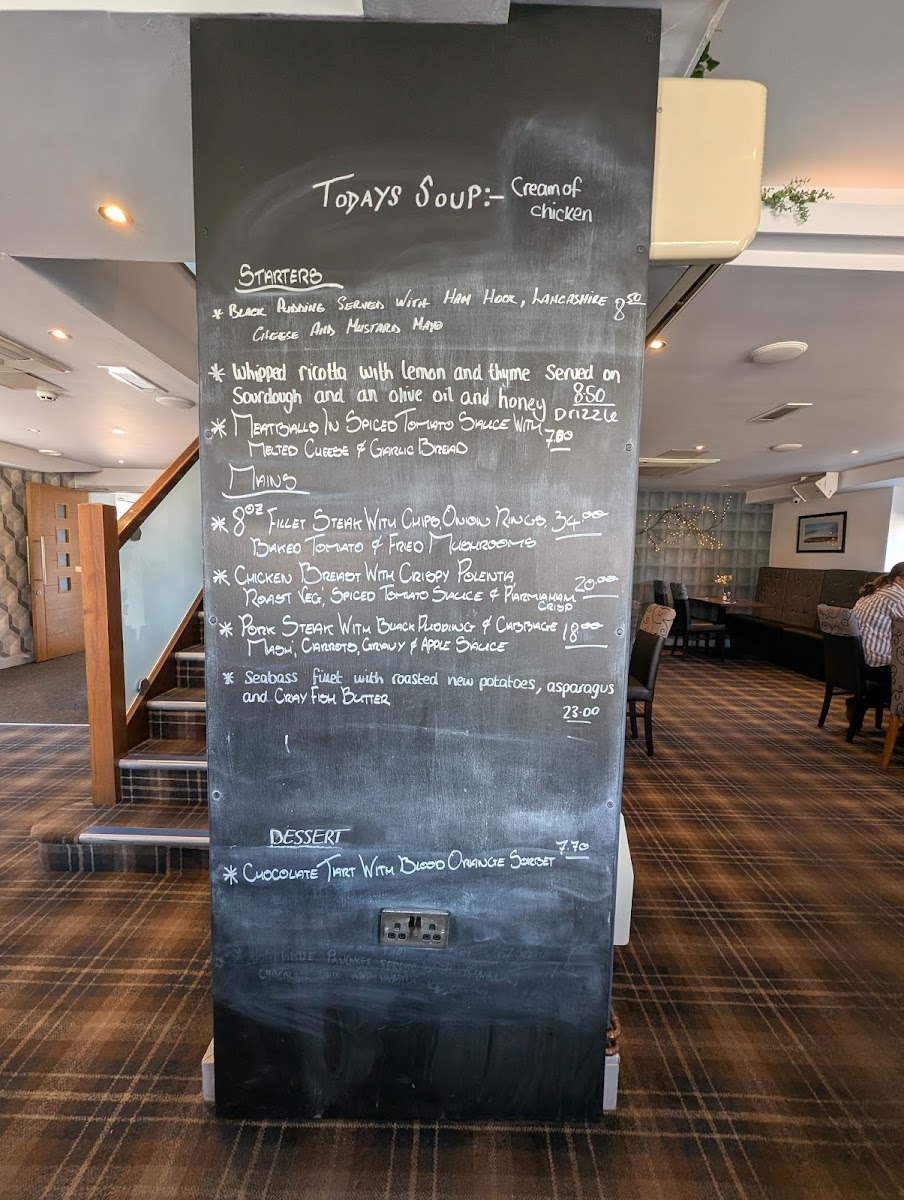 TODAYS SOUP:- Cream of
chicken
STARTERS
* BLACK PUDDING SERVED WITH HAM HOCK, LANCASHIRE 8.50
CHEESE AND MUSTARD MAYO
* Whipped ricotta with lemon and thyme served on
Sourdough and an olive oil and honey 8.50
DRIZZLE
* MEATBALLS IN SPICED TOMATO SAUCE WITH 7.00
MELTED CHEESE & GARLIC BREAD
MAINS
* 8oz FILLET STEAK WITH CHIPS, ONION RINGS, 34.00
BAKED TOMATO & FRIED MUSHROOMS
* CHICKEN BREAST WITH CRISPY POLENTA,
ROAST VEG, SPICED TOMATO SAUCE & PARMAHAM 20.00
CRISP
* PORK STEAK WITH BLACK PUDDING & CABBAGE 18.00
MASH, CARROTS, GRAVY & APPLE SAUCE
* Seabass fillet with roasted new potatoes, asparagus
and CRAY FISH BUTTER
23.00
DESSERT
* CHOCOLATE TART WITH BLOOD ORANGE SORBET 7.70